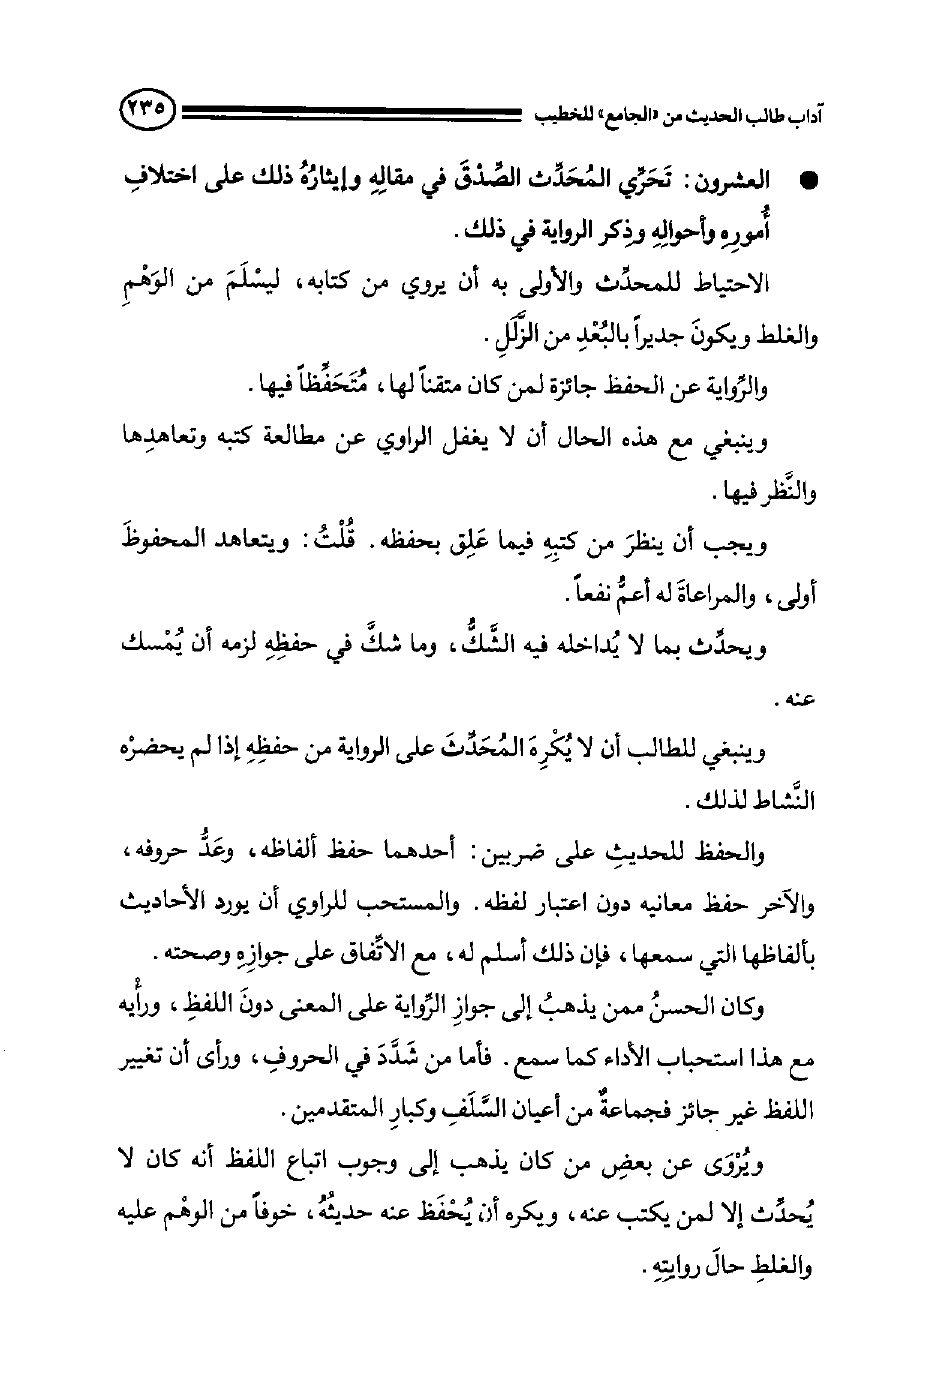 آداب طالب الحديث من «الجامع» للخطيب ٢٣٥
● العشرون: تَحَرِّي المُحَدِّث الصِّدْقَ في مقالِهِ وإيثارُهُ ذلك على اختلافِ
أُمورِهِ وأحوالِهِ وذِكر الرواية في ذلك.
الاحتياط للمحدِّث والأولى به أن يروي من كتابه، ليسْلَمَ من الوَهْمِ
والغلط ويكونَ جديراً بالبُعْدِ من الزَّلَلِ.
والرِّواية عن الحفظ جائزة لمن كان متقناً لها، مُتَحَفِّظاً فيها.
وينبغي مع هذه الحال أن لا يغفل الراوي عن مطالعة كتبه وتعاهدِها
والنَّظر فيها.
ويجب أن ينظرَ من كتبِهِ فيما عَلِق بحفظه. قُلْتُ: ويتعاهد المحفوظَ
أولى، والمراعاةَ له أعمُّ نفعاً.
ويحدِّث بما لا يُداخله فيه الشَّكُّ، وما شكَّ في حفظِهِ لزمه أن يُمْسك
عنه.
وينبغي للطالب أن لا يُكْرِهَ المُحَدِّثَ على الرواية من حفظِهِ إذا لم يحضرْه
النَّشاط لذلك.
والحفظ للحديثِ على ضربين: أحدهما حفظ ألفاظه، وعَدُّ حروفه،
والآخر حفظ معانيه دون اعتبار لفظه. والمستحب للراوي أن يورد الأحاديث
بألفاظها التي سمعها، فإن ذلك أسلم له، مع الاتِّفاق على جوازِهِ وصحته.
وكان الحسنُ ممن يذهبُ إلى جوازِ الرِّواية على المعنى دونَ اللفظِ، ورأْيه
مع هذا استحباب الأداء كما سمع. فأما من شَدَّدَ في الحروفِ، ورأى أن تغيير
اللفظ غير جائز فجماعةٌ من أعيان السَّلَفِ وكبارِ المتقدمين.
ويُرْوَى عن بعضِ من كان يذهب إلى وجوب اتباع اللفظ أنه كان لا
يُحدِّث إلا لمن يكتب عنه، ويكره أن يُحْفَظ عنه حديثُهُ، خوفاً من الوهْم عليه
والغلطِ حالَ روايتِهِ.